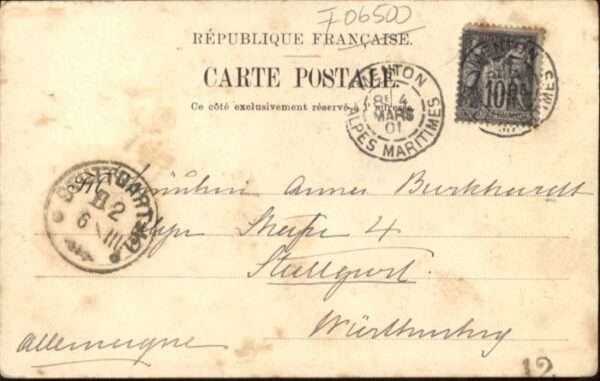 F06500
RÉPUBLIQUE FRANÇAISE.
CARTE POSTALE.
Ce côté exclusivement réservé à l'adresse
MENTON
8E 4
MARS
01
ALPES MARITIMES
MENTON
10
MARITIMES
STUTTGART
2
6 III
Fräulein Anna Burkhardt
Straße 4
Stuttgart.
Württemberg
Allemagne
12